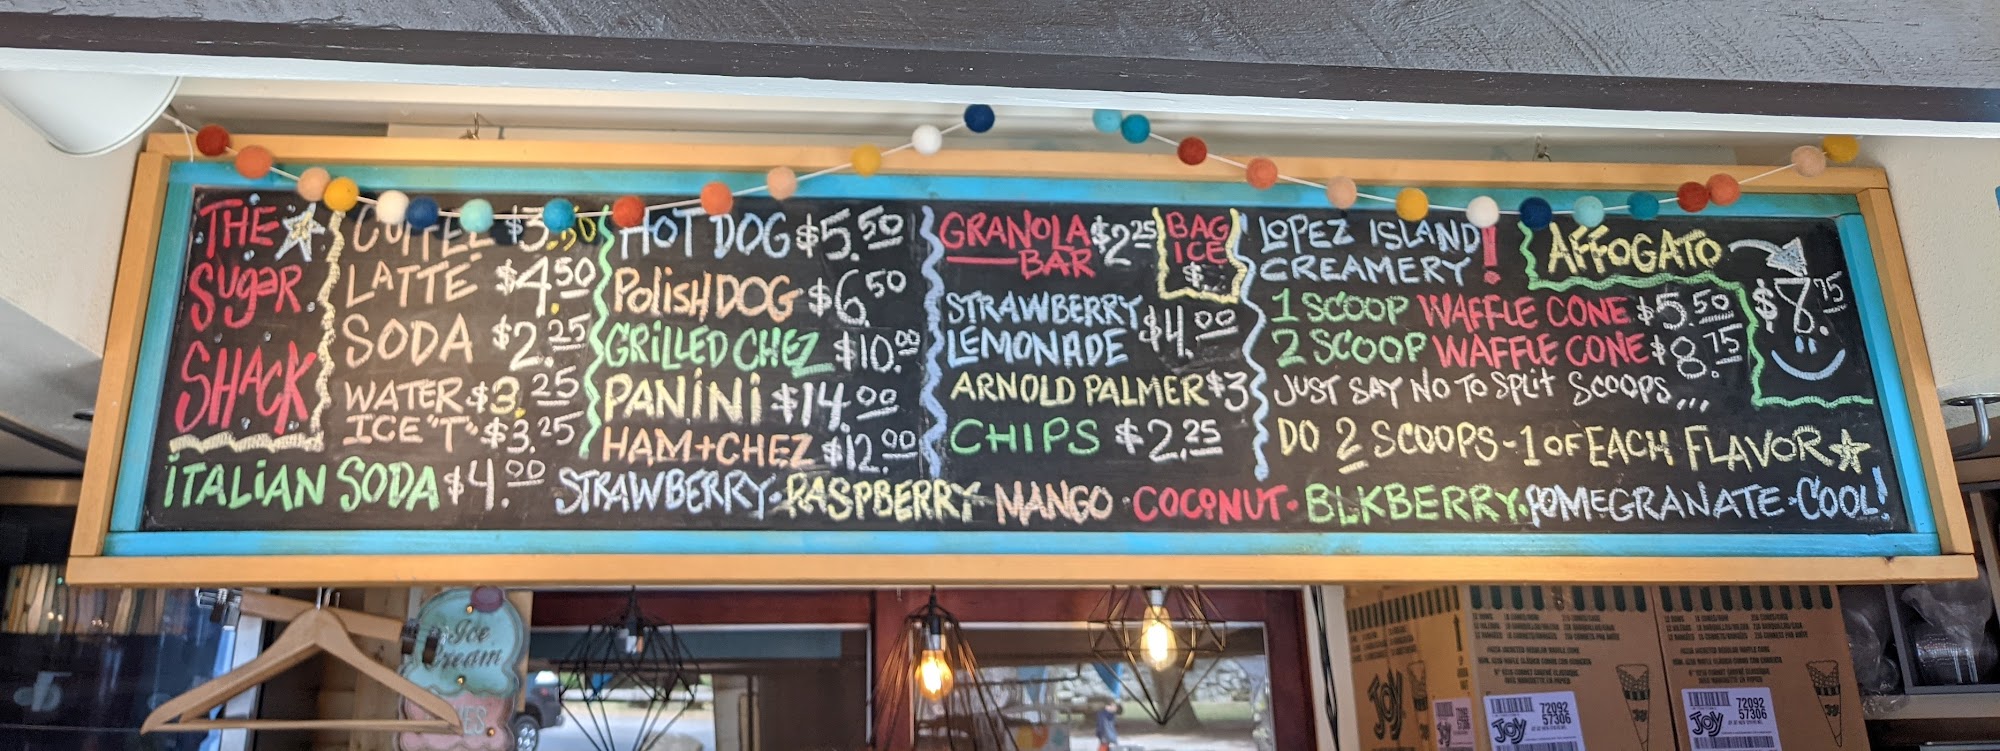 THE
SUgaR
SHACK
COFFEE $3.50
LATTE $4.50
SODA $2.25
WATER $3.25
ICE "T" $3.25
HOT DOG $5.50
POLISH DOG $6.50
GRILLED CHEZ $10.00
PANINI $14.00
HAM+CHEZ $12.00
GRANOLA $2.25
BAR
BAG
ICE
$
STRAWBERRY
LEMONADE $4.00
ARNOLD PALMER $3
CHIPS $2.25
LOPEZ ISLAND
CREAMERY!
AFFOGATO
$8.75
1 SCOOP WAFFLE CONE $5.50
2 SCOOP WAFFLE CONE $8.75
JUST SAY NO TO SPLIT SCOOPS...
DO 2 SCOOPS - 1 OF EACH FLAVOR
ITALIAN SODA $4.00 STRAWBERRY · RASPBERRY MANGO · COCONUT · BLKBERRY · POMEGRANATE · COOL!
Ice
Cream
JOY
JOY
72092
57306
JOY
72092
57306